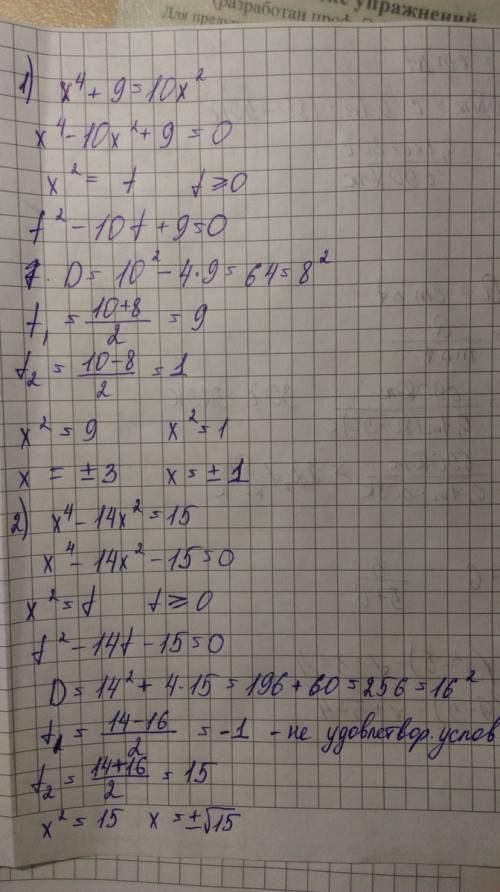 кс упражнений
(разработан проф.
Для
1) x⁴ + 9 = 10x²
x⁴ - 10x² + 9 = 0
x² = t t ≥ 0
t² - 10t + 9 = 0
D = 10² - 4·9 = 64 = 8²
t₁ = (10+8)/2 = 9
t₂ = (10-8)/2 = 1
x² = 9 x² = 1
x = ±3 x = ±1
2) x⁴ - 14x² = 15
x⁴ - 14x² - 15 = 0
x² = t t ≥ 0
t² - 14t - 15 = 0
D = 14² + 4·15 = 196 + 60 = 256 = 16²
t₁ = (14-16)/2 = -1 - не удовлетвор. услов
t₂ = (14+16)/2 = 15
x² = 15 x = ±√15